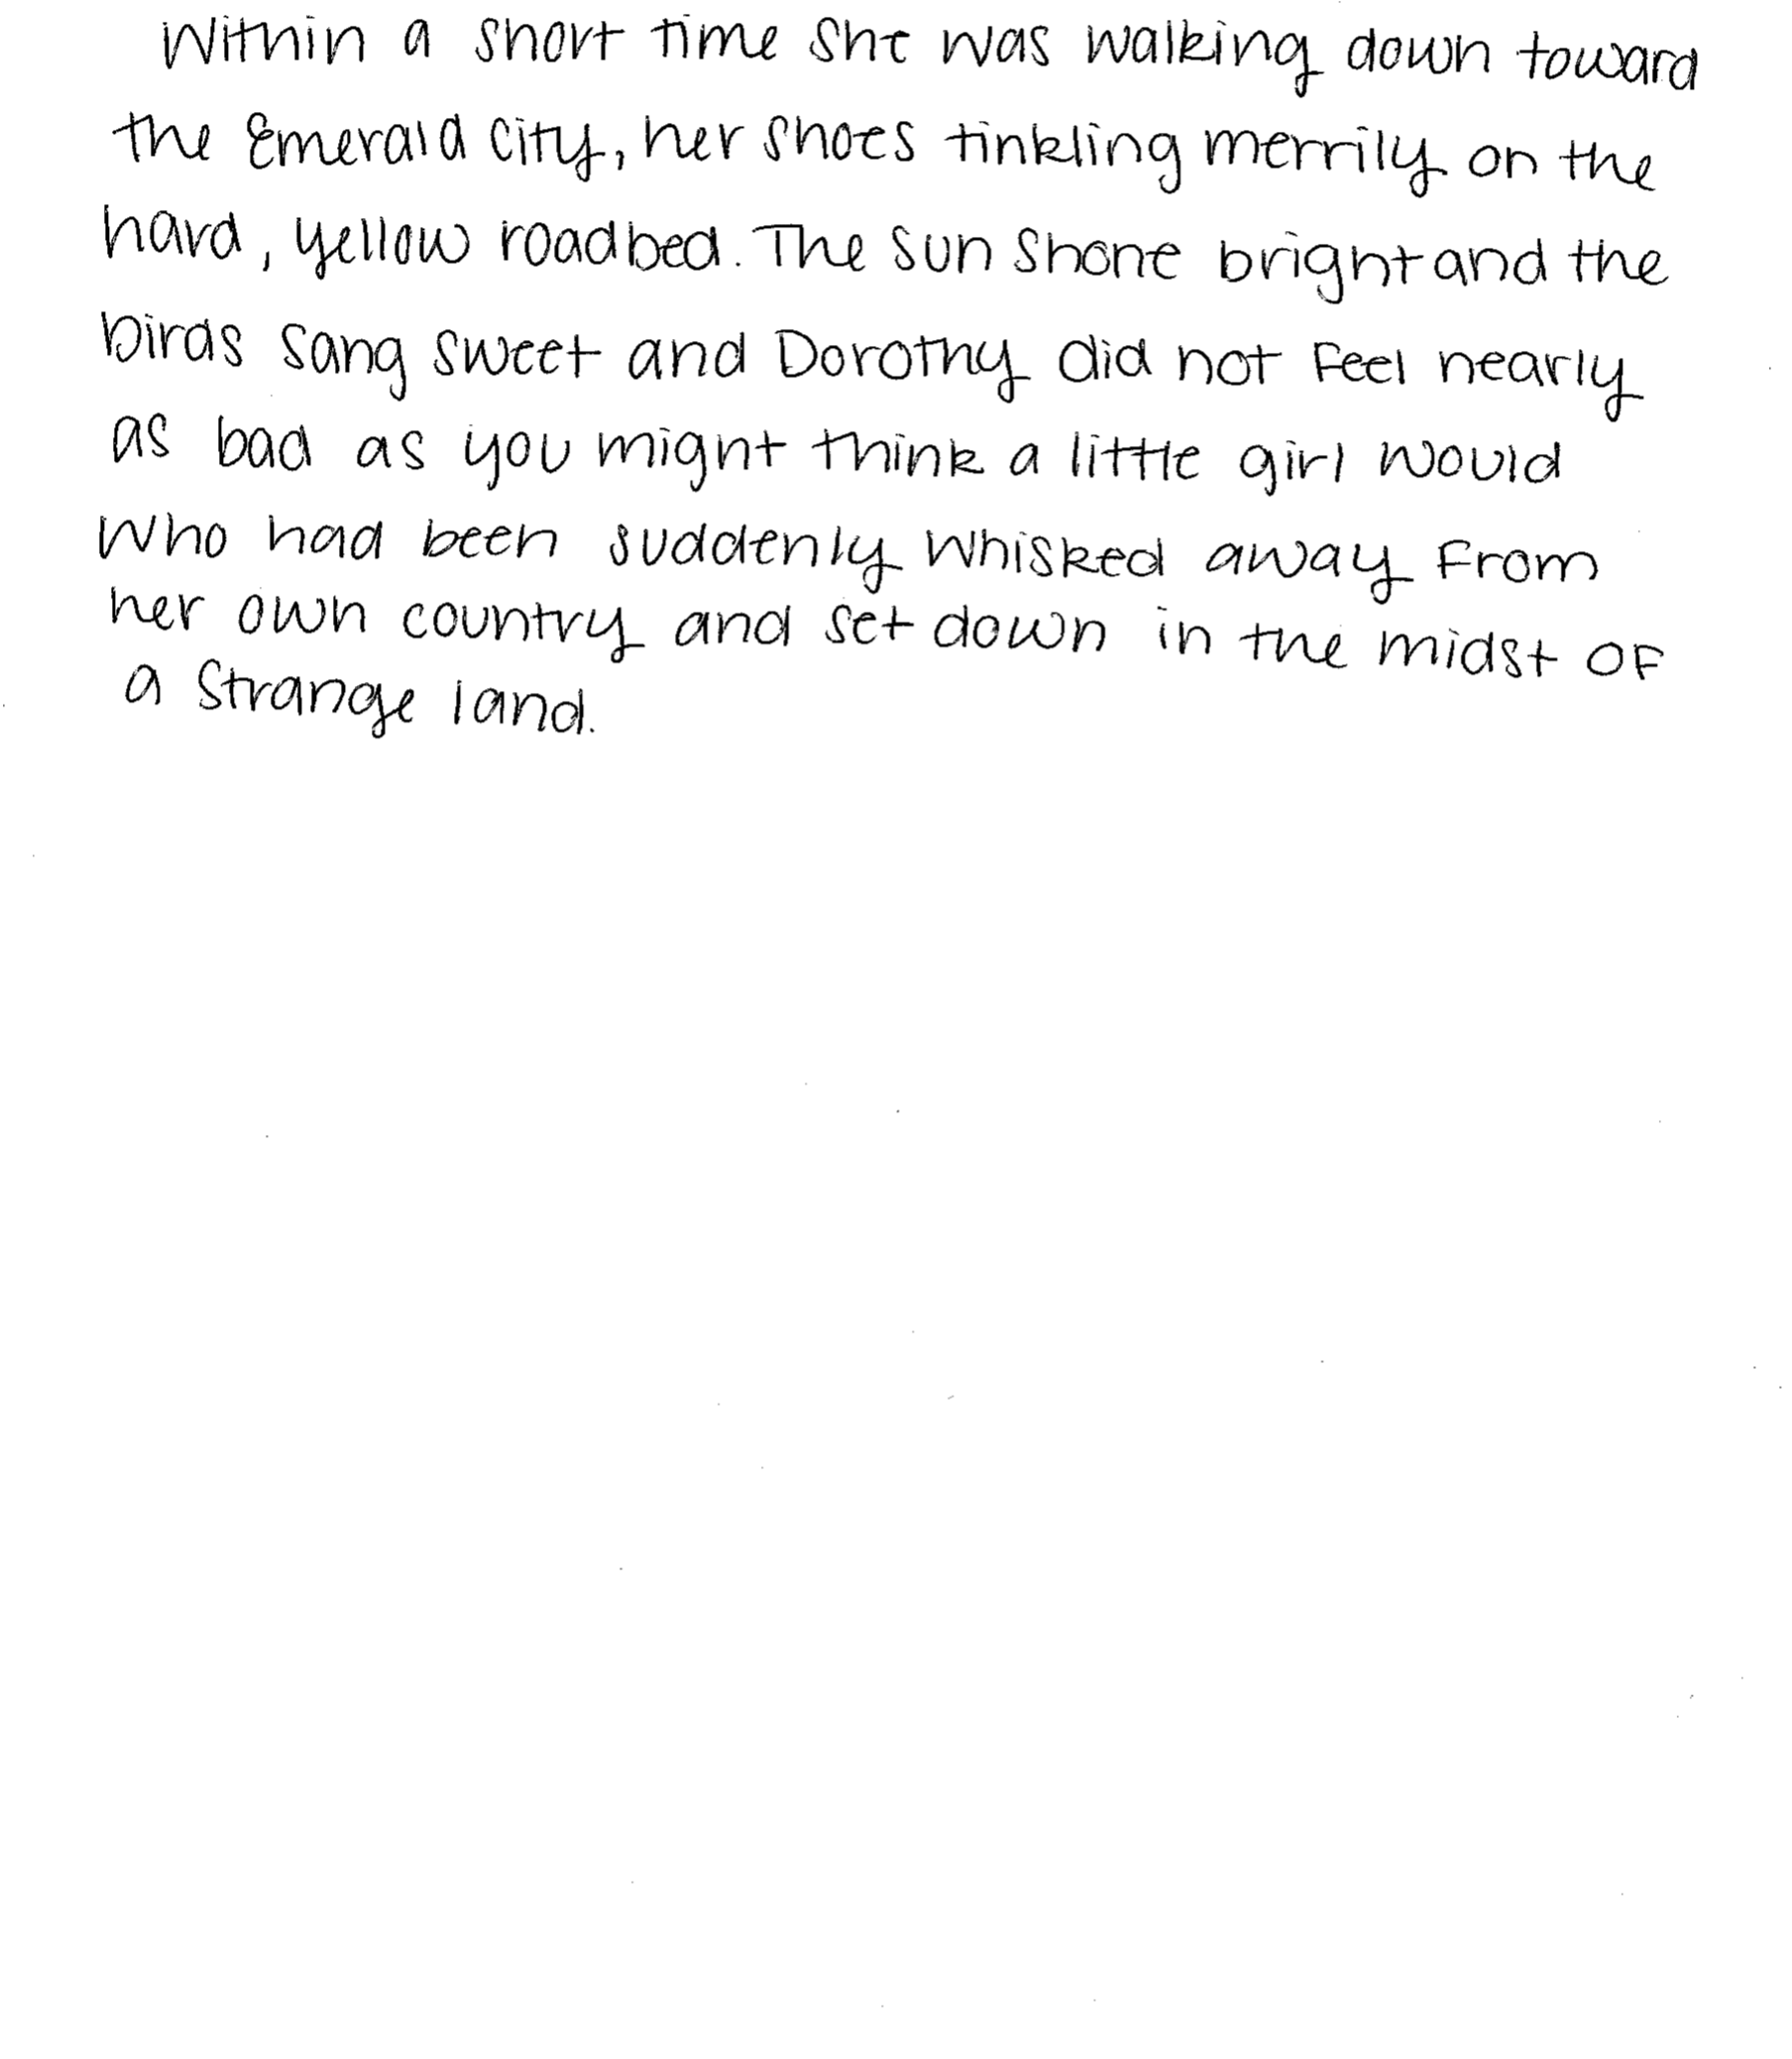 Within a short time she was walking down toward
the Emerald City, her shoes tinkling merrily on the
hard, yellow roadbed. The sun shone bright and the
birds sang sweet and Dorothy did not feel nearly
as bad as you might think a little girl would
who had been suddenly whisked away from
her own country and set down in the midst of
a strange land.